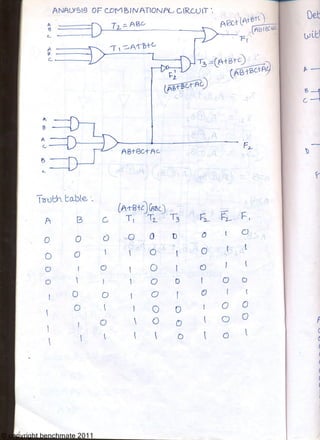 ANALYSIS OF COMBINATIONAL CIRCUIT :
A
B
C
T2 = ABC
A
B
C
T1 = A+B+C
F1
T3 = (A+B+C)
(AB+BC+AC)
F2'
(AB+BC+AC)
A
B
A
C
B
C
AB+BC+AC
F2
Truth table :
(A+B+C) (ABC)
A B C T1 T2 T3 F2 F2 F1
0 0 0 0 0 0 0 1 0
0 0 1 1 0 1 0 1 1
0 1 0 1 0 1 0 1 1
0 1 1 1 0 0 1 0 0
1 0 0 1 0 1 0 1 1
1 0 1 1 0 0 1 0 0
1 1 0 1 0 0 1 0 0
1 1 1 1 1 0 1 0 1
Copyright benchmate 2011